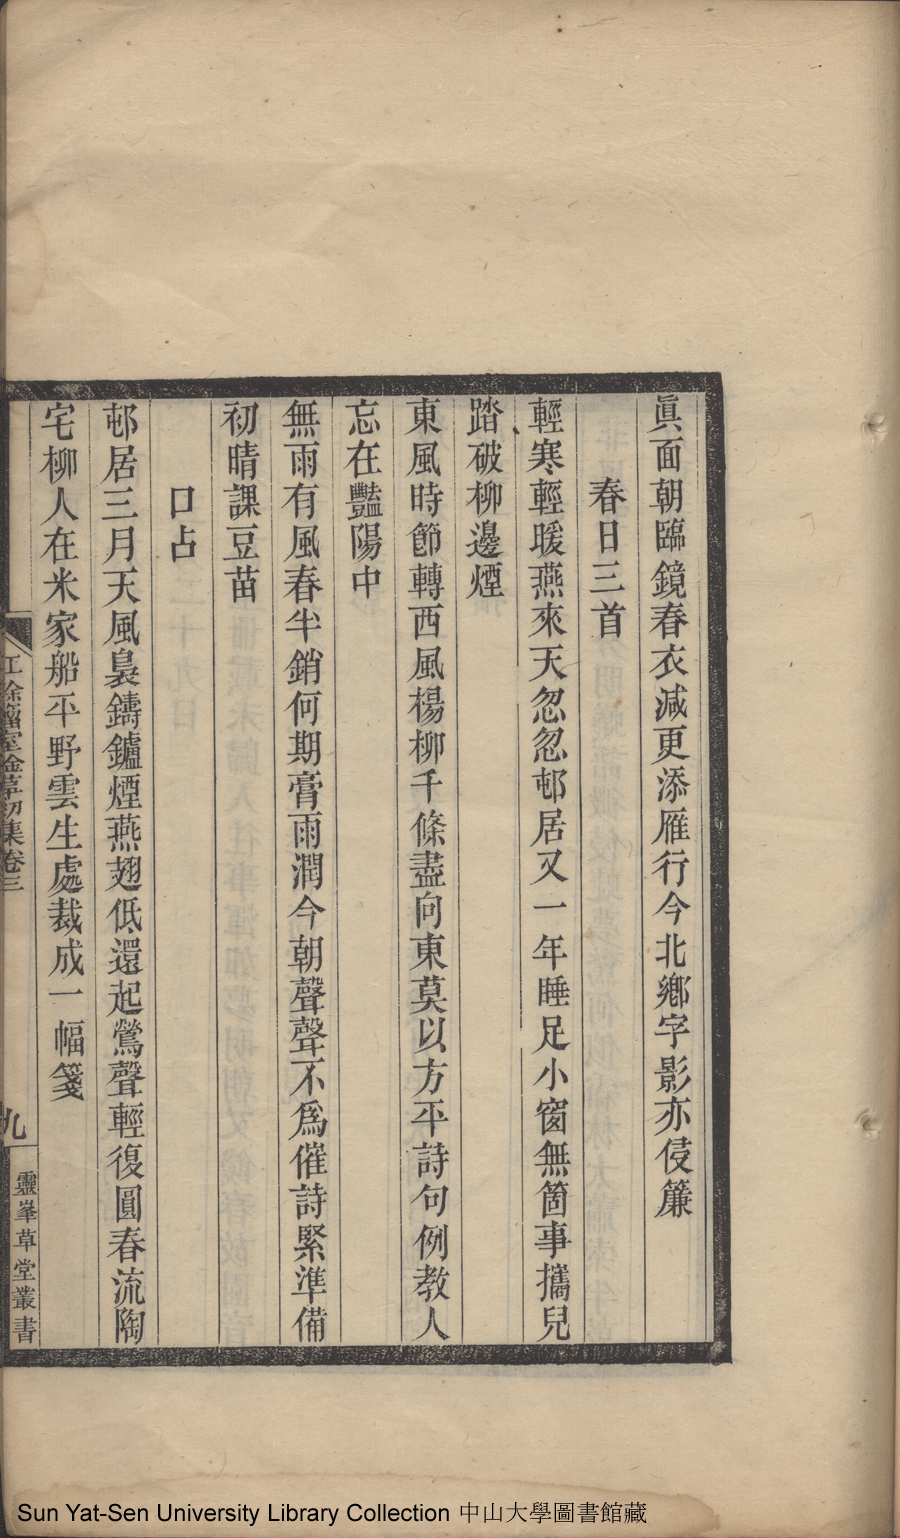 眞面朝臨鏡春衣減更添雁行今北鄉字影亦侵簾
春日三首
輕寒輕暖燕來天忽忽邨居又一年睡足小窗無箇事攜兒
踏破柳邊煙
東風時節轉西風楊柳千條盡向東莫以方平詩句例教人
忘在豔陽中
無雨有風春半銷何期膏雨潤今朝聲聲不爲催詩緊準備
初晴課豆苗
口占
邨居三月天風裊鑄鑪煙燕翅低還起鶯聲輕復圓春流陶
宅柳人在米家船平野雲生處裁成一幅箋
集卷三
九
靈峯草堂叢書
Sun Yat-Sen University Library Collection 中山大學圖書館藏